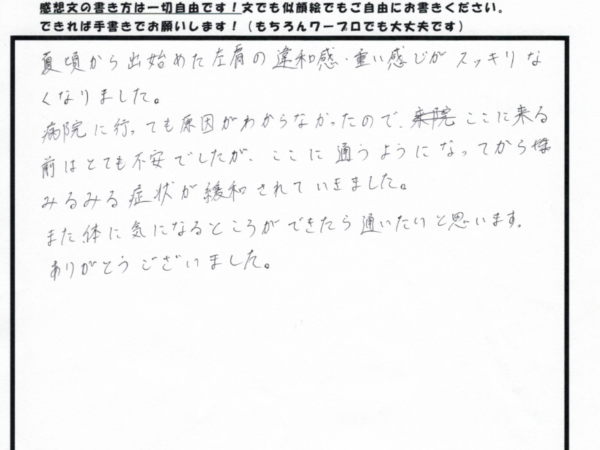 感想文の書き方は一切自由です！文でも似顔絵でもご自由にお書きください。
できれば手書きでお願いします！（もちろんワープロでも大丈夫です）
夏頃から出始めた左肩の違和感・重い感じがスッキリな
くなりました。
病院に行っても原因がわからなかったので、来院ここに来る
前はとても不安でしたが、ここに通うようになってから
みるみる症状が緩和されていきました。
また体に気になるところができたら通いたいと思います。
ありがとうございました。